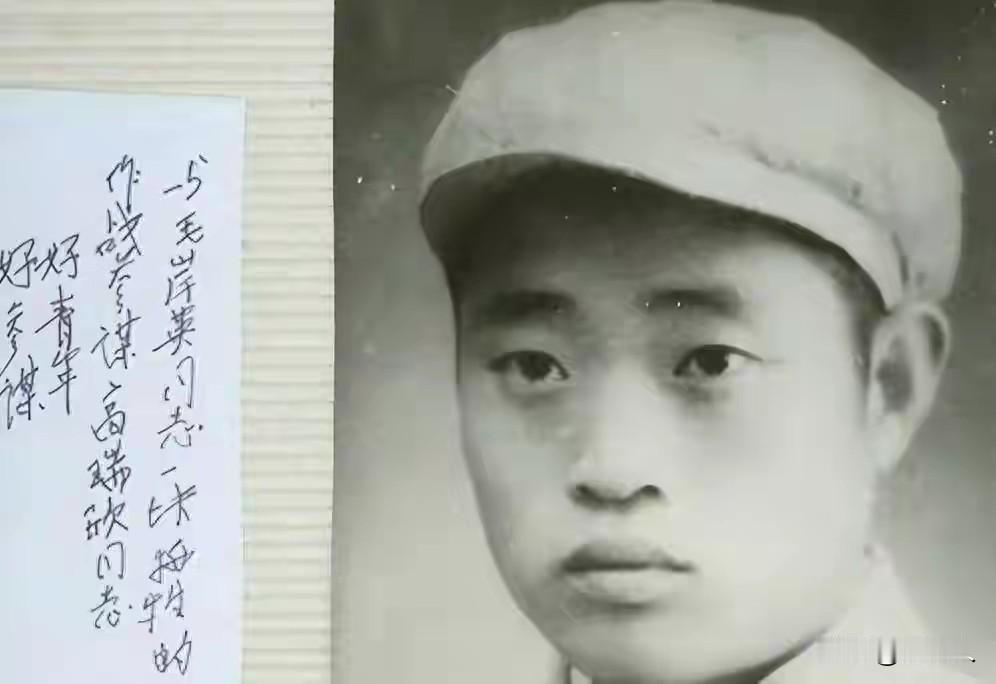 与毛岸英同志一块牺牲的
作战参谋高瑞欣同志
好青年
好参谋